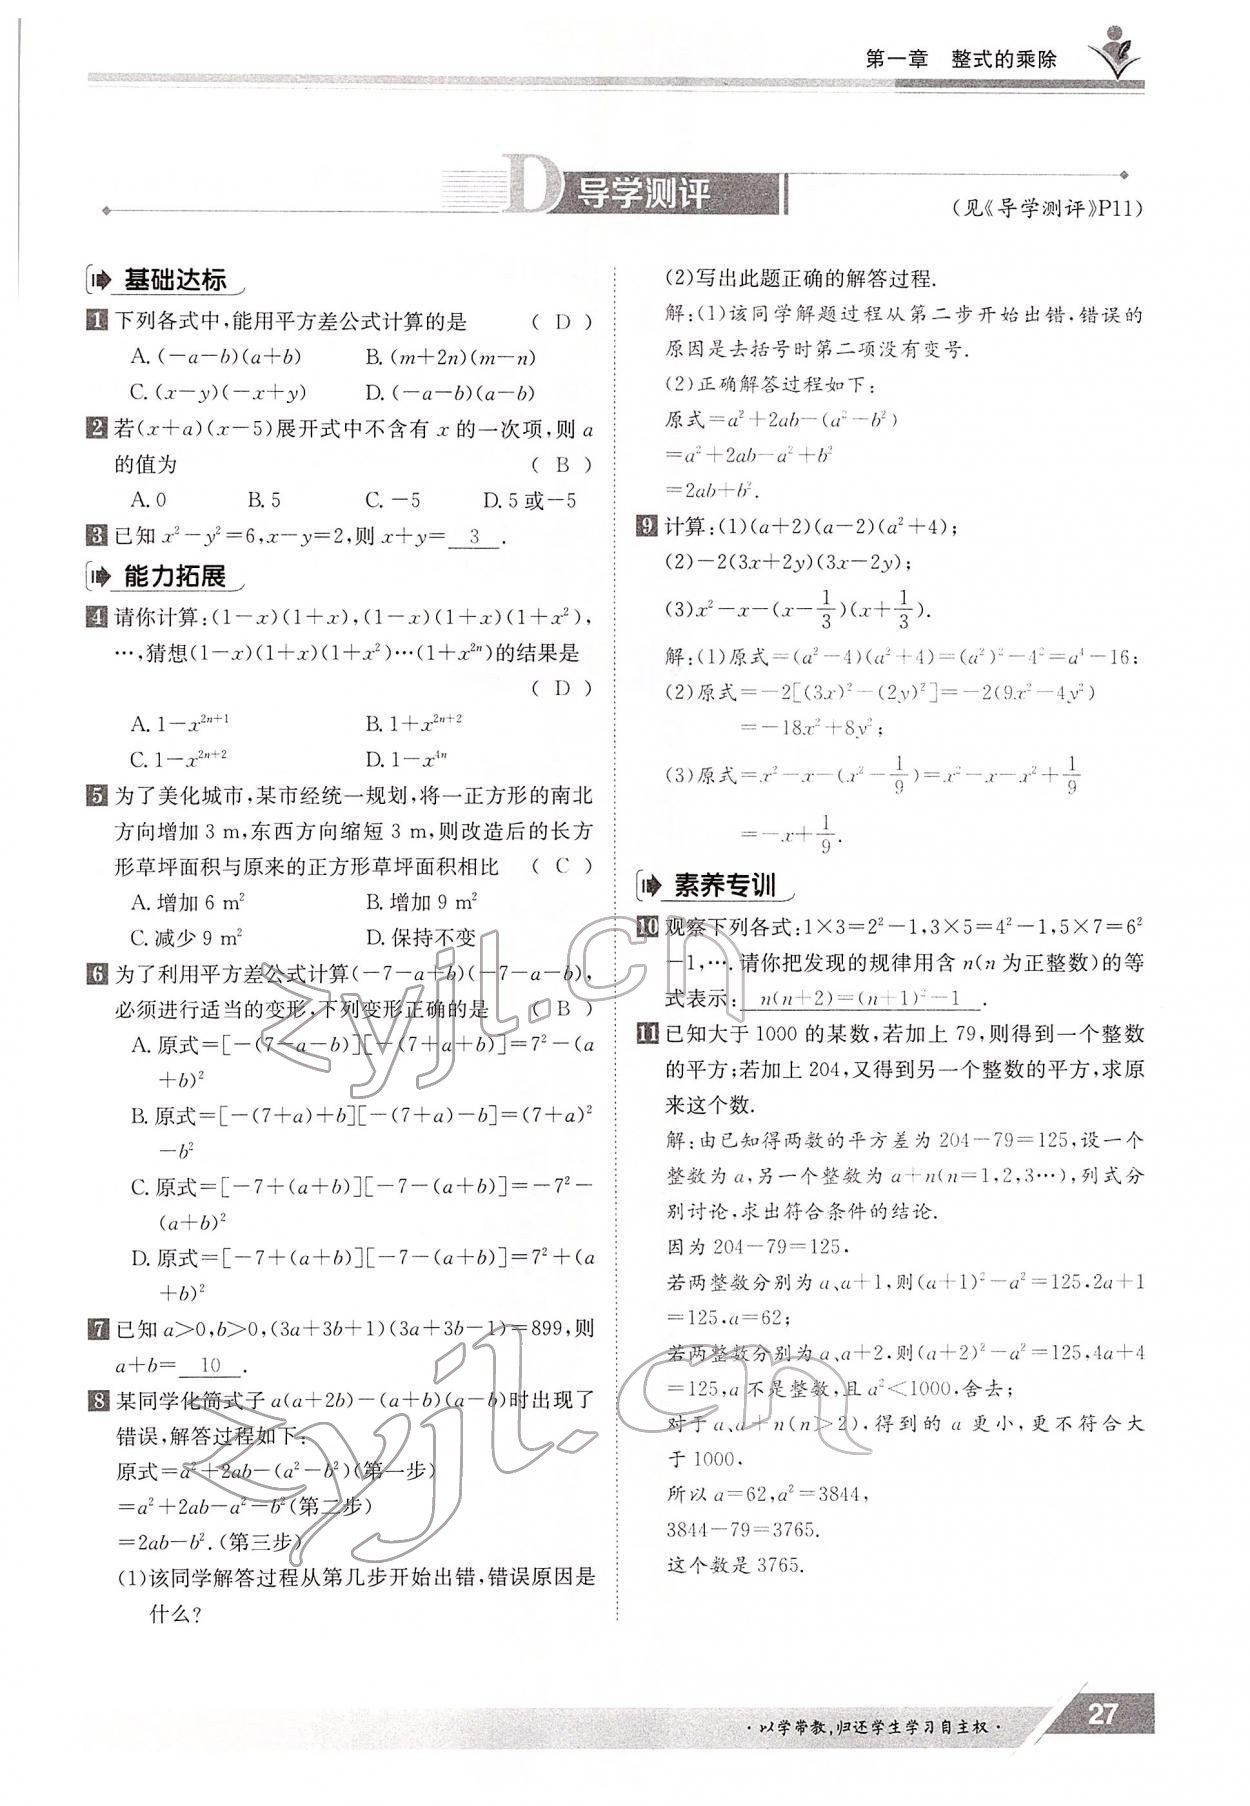 第一章 整式的乘除
D 导学测评
(见《导学测评》P11)
基础达标
1 下列各式中,能用平方差公式计算的是 ( D )
A. (−a−b)(a+b) B. (m+2n)(m−n)
C. (x−y)(−x+y) D. (−a−b)(a−b)
2 若(x+a)(x−5)展开式中不含有 x 的一次项,则 a
的值为 ( B )
A. 0 B. 5 C. −5 D. 5 或−5
3 已知 x²−y²=6,x−y=2,则 x+y= 3 .
能力拓展
4 请你计算:(1−x)(1+x),(1−x)(1+x)(1+x²),
…,猜想(1−x)(1+x)(1+x²)…(1+x²ⁿ)的结果是
( D )
A. 1−x²ⁿ⁺¹ B. 1+x²ⁿ⁺²
C. 1−x²ⁿ⁺² D. 1−x⁴ⁿ
5 为了美化城市,某市经统一规划,将一正方形的南北
方向增加 3 m,东西方向缩短 3 m,则改造后的长方
形草坪面积与原来的正方形草坪面积相比 ( C )
A. 增加 6 m² B. 增加 9 m²
C. 减少 9 m² D. 保持不变
6 为了利用平方差公式计算(−7−a+b)(−7−a−b),
必须进行适当的变形,下列变形正确的是 ( B )
A. 原式=[−(7−a−b)][−(7+a+b)]=7²−(a
+b)²
B. 原式=[−(7+a)+b][−(7+a)−b]=(7+a)²
−b²
C. 原式=[−7+(a+b)][−7−(a+b)]=−7²−
(a+b)²
D. 原式=[−7+(a+b)][−7−(a+b)]=7²+(a
+b)²
7 已知 a>0,b>0,(3a+3b+1)(3a+3b−1)=899,则
a+b= 10 .
8 某同学化简式子 a(a+2b)−(a+b)(a−b)时出现了
错误,解答过程如下:
原式=a²+2ab−(a²−b²)(第一步)
=a²+2ab−a²−b²(第二步)
=2ab−b².(第三步)
(1)该同学解答过程从第几步开始出错,错误原因是
什么?
(2)写出此题正确的解答过程.
解:(1)该同学解题过程从第二步开始出错,错误的
原因是去括号时第二项没有变号.
(2)正确解答过程如下:
原式=a²+2ab−(a²−b²)
=a²+2ab−a²+b²
=2ab+b².
9 计算:(1)(a+2)(a−2)(a²+4);
(2)−2(3x+2y)(3x−2y);
(3)x²−x−(x−1/3)(x+1/3).
解:(1)原式=(a²−4)(a²+4)=(a²)²−4²=a⁴−16;
(2)原式=−2[(3x)²−(2y)²]=−2(9x²−4y²)
=−18x²+8y²;
(3)原式=x²−x−(x²−1/9)=x²−x−x²+1/9
=−x+1/9.
素养专训
10 观察下列各式:1×3=2²−1,3×5=4²−1,5×7=6²
−1,…. 请你把发现的规律用含 n(n 为正整数)的等
式表示: n(n+2)=(n+1)²−1 .
11 已知大于 1000 的某数,若加上 79,则得到一个整数
的平方;若加上 204,又得到另一个整数的平方,求原
来这个数.
解:由已知得两数的平方差为 204−79=125,设一个
整数为 a,另一个整数为 a+n(n=1,2,3…),列式分
别讨论,求出符合条件的结论.
因为 204−79=125.
若两整数分别为 a、a+1,则(a+1)²−a²=125.2a+1
=125.a=62;
若两整数分别为 a、a+2.则(a+2)²−a²=125,4a+4
=125,a 不是整数,且 a²<1000.舍去;
对于 a、a+n(n>2),得到的 a 更小,更不符合大
于 1000.
所以 a=62,a²=3844,
3844−79=3765.
这个数是 3765.
zyjl.cn
zyjl.cn
·以学带教,归还学生学习自主权·
27